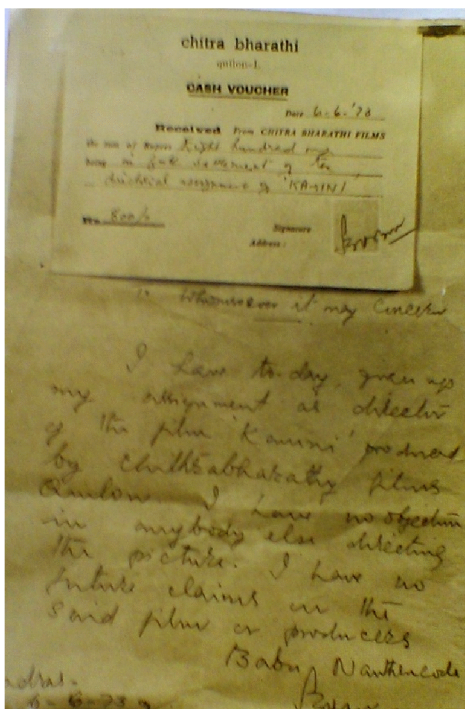 chitra bharathi
quilon-1.
CASH VOUCHER
Date 6-6-'73
Received From CHITRA BHARATHI FILMS
the sum of Rupees Eight hundred only
being in full settlement of the
directorial assignment of 'KAMINI'
Rs. 800/-
Signature
Address:
To Whomsoever it may Concern
I have to-day given up
my assignment as director
of the film 'Kamini' produced
by chithrabharathy films
Quilon. I have no objection
in anybody else directing
the picture. I have no
future claims on the
said film or producers
Babu Nanthencode
ndras-
6-6-73